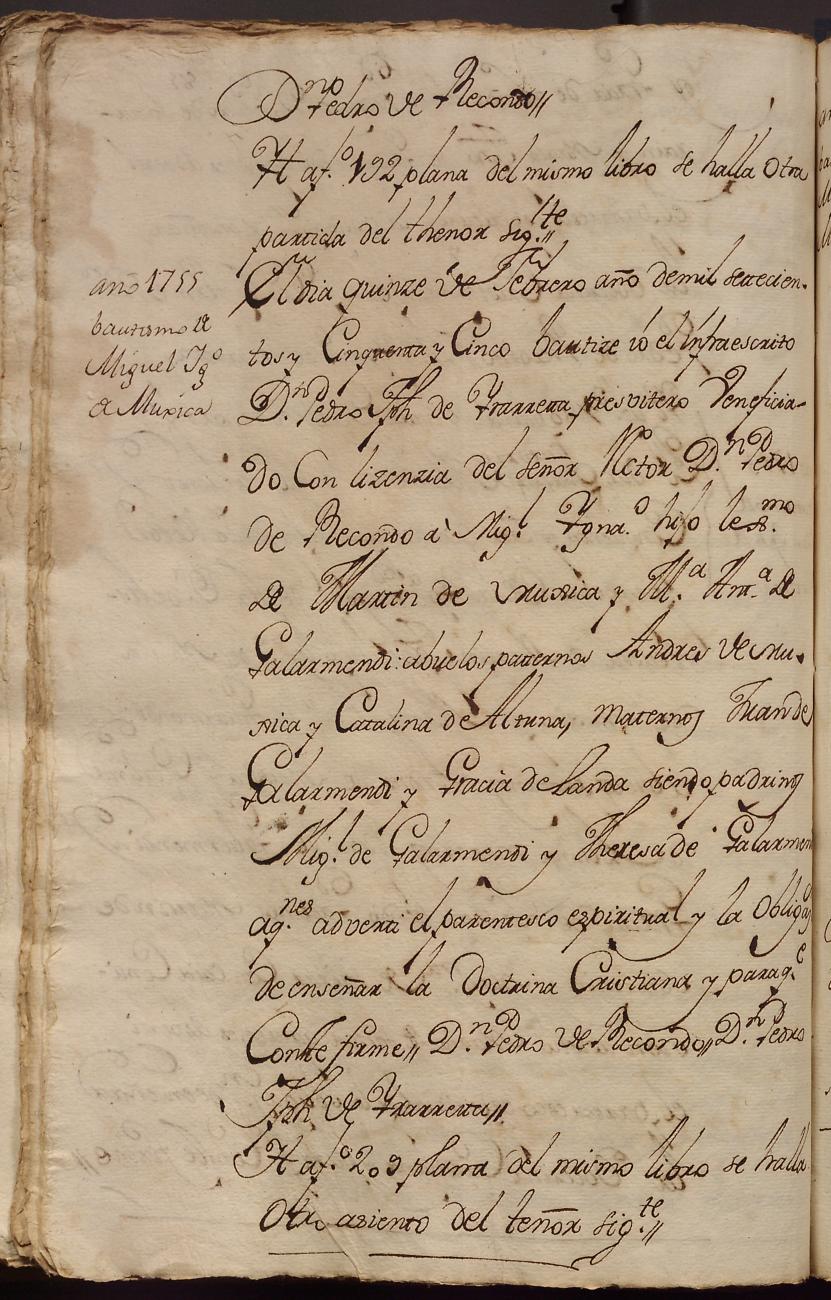 Dn Pedro de Recondo//
Y af.o 192 plana del mismo libro se halla otra
partida del thenor sig.te//
año 1755
bautismo de
Miguel Ig.o
de Muxica
El dia quinze de Febrero año demil setecien-
tos y Cinquenta y Cinco bautize io el infraescrito
D.n Pedro Jph de Yrarreta presvitero Venefician-
do Con lizenzia del señor Retor D.n Pedro
de Recondo a Mig.l Ygna.o hijo leg.mo
de Martin de Muxica y M.a Ant.a de
Galarmendi: abuelos paternos Andres de Mu-
xica y Catalina de Altuna, maternos Juan de
Galarmendi y Gracia de Landa siendo padrinos
Mig.l de Galarmendi y Theresa de Galarmen
aq.nes adverti el parentesco espiritual y la obligaz
de enseñar la Doctrina Cristiana y paraq.e
Conste firme// D.n Pedro de Recondo// D.n Pedro
Jph de Yrarreta//
Y af.o 209 plana del mismo libro se halla
Otro asiento del tenor sig.te//